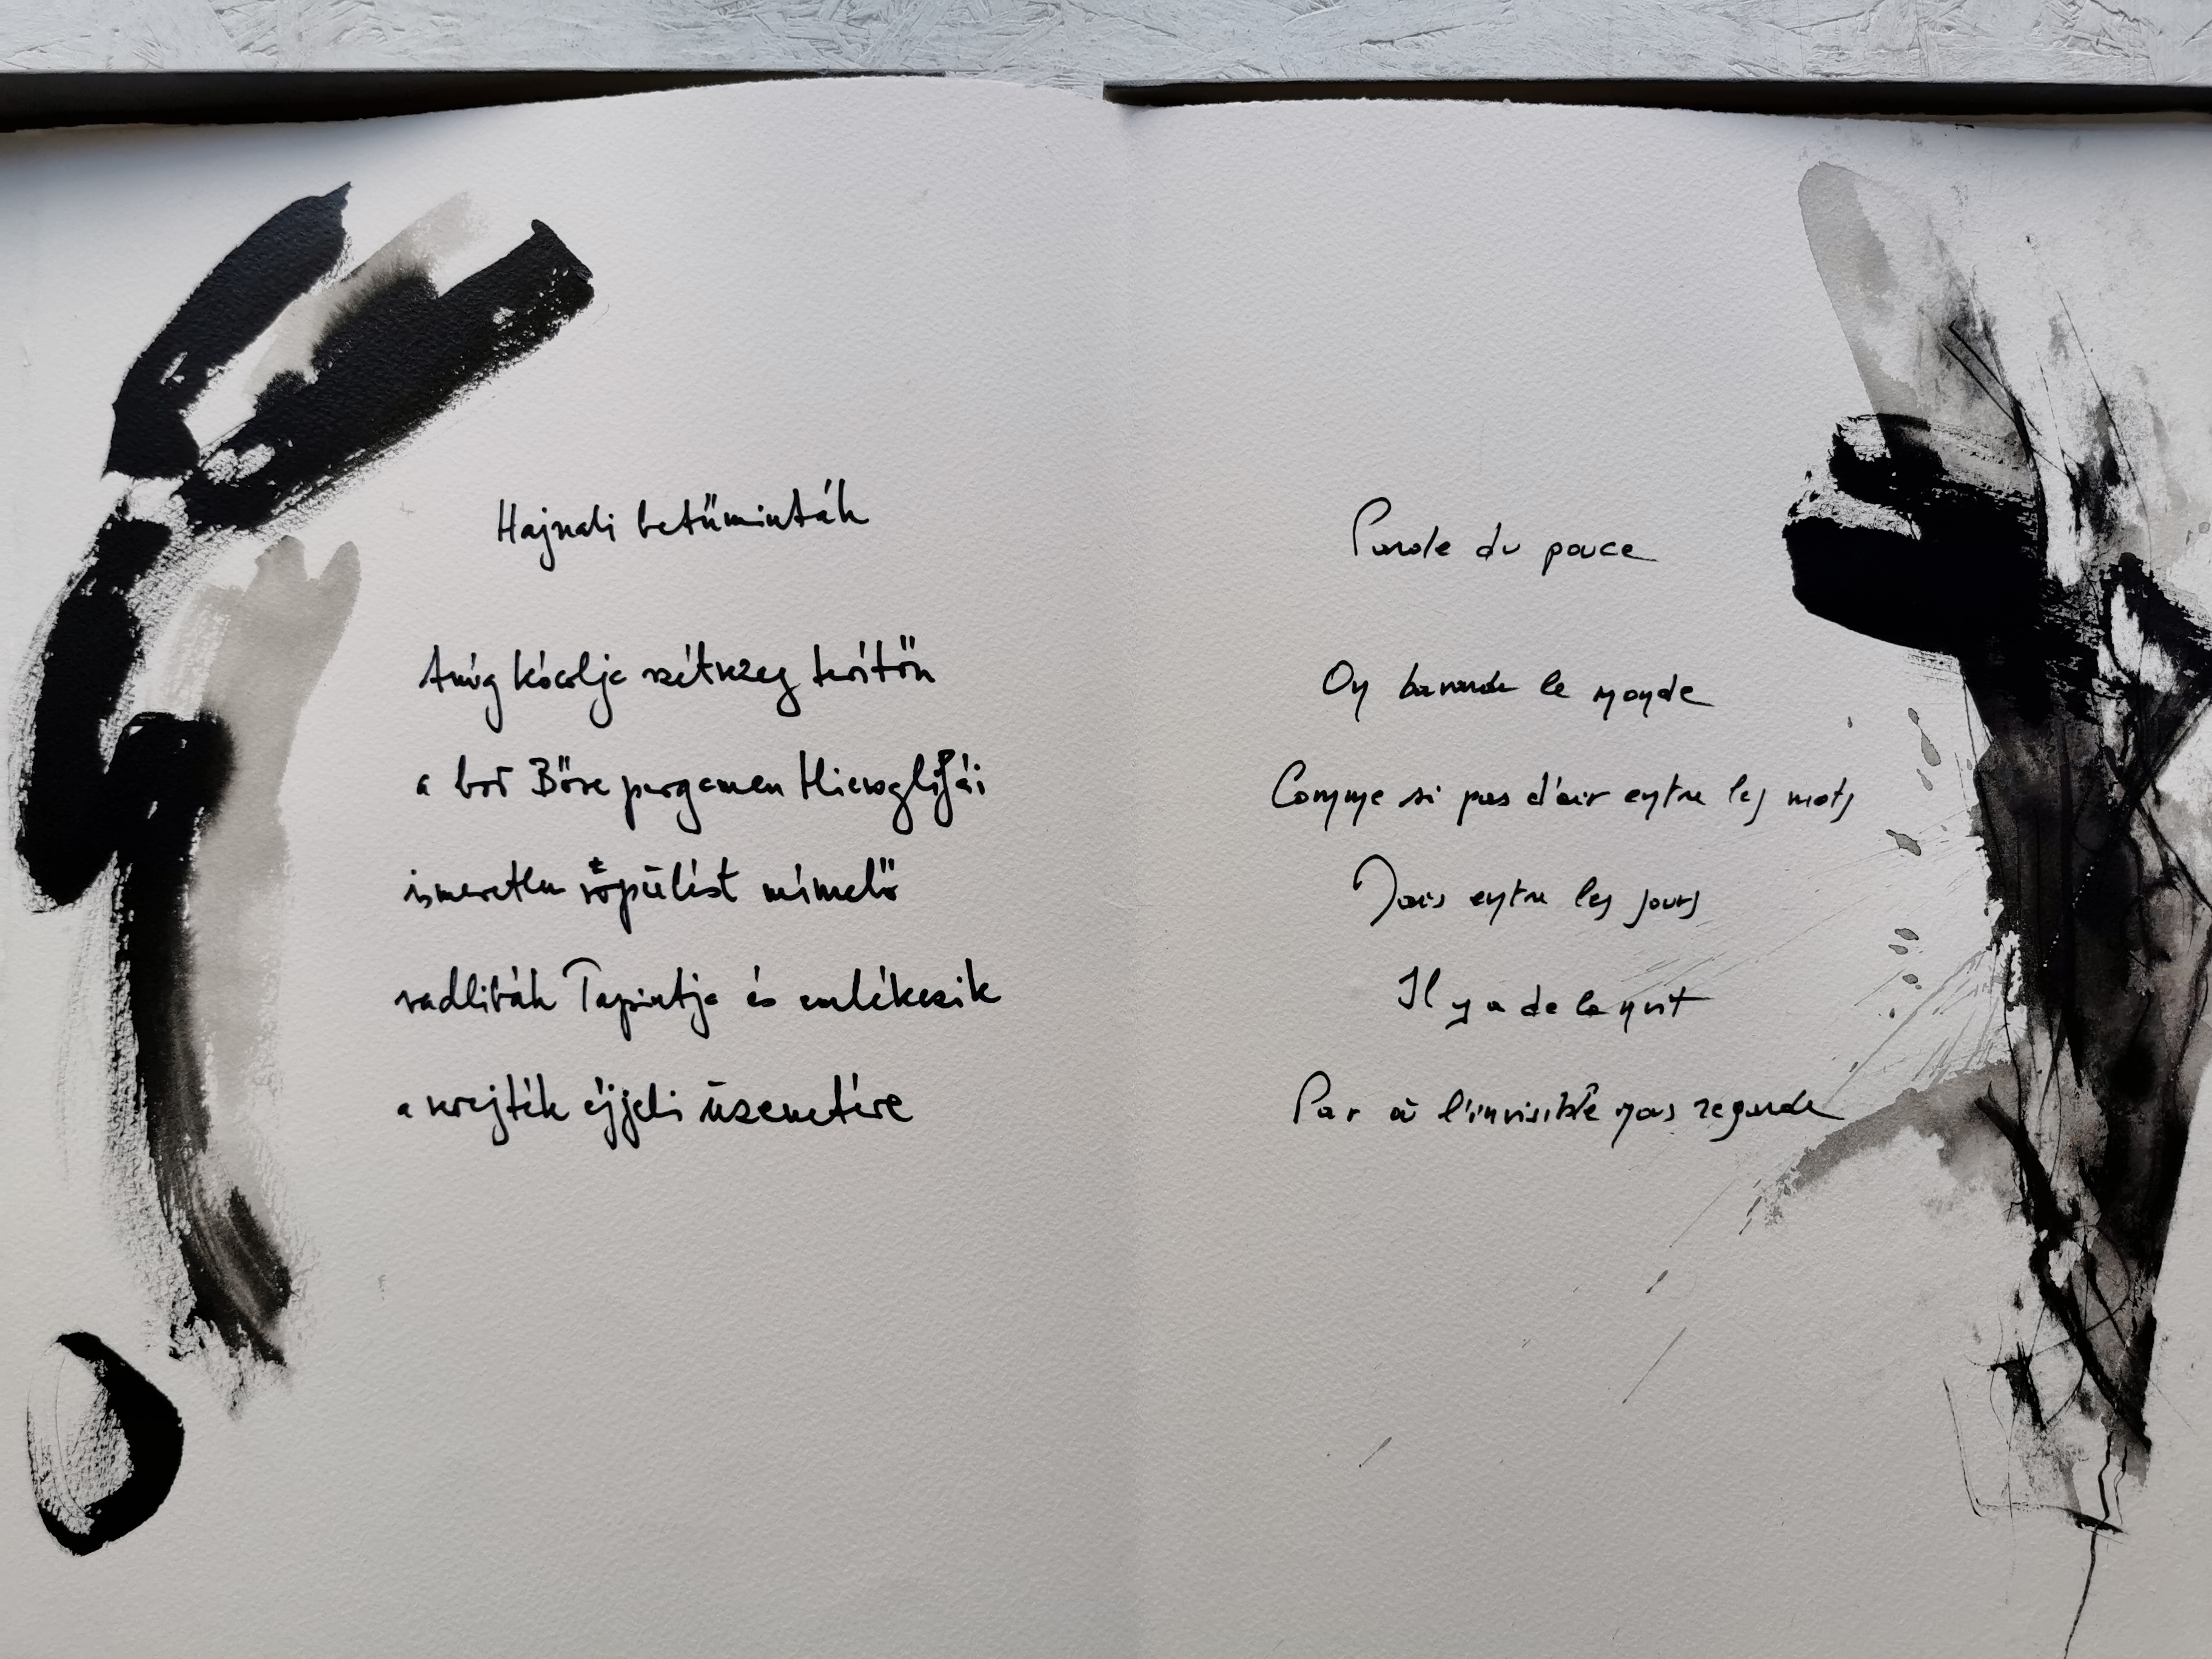 Hajnali betűminták
Amíg kócolja szétszeg terítőn
a bor Bőre pergamen Hieroglifái
ismeretlen röpülést mímelő
vadlibák Tapintja és emlékezik
a verejték éjjeli üzenetére
Parole du pouce
On bavarde le monde
Comme si pas d'air entre les mots
Mais entre les jours
Il y a de la nuit
Par où l'invisible nous regarde